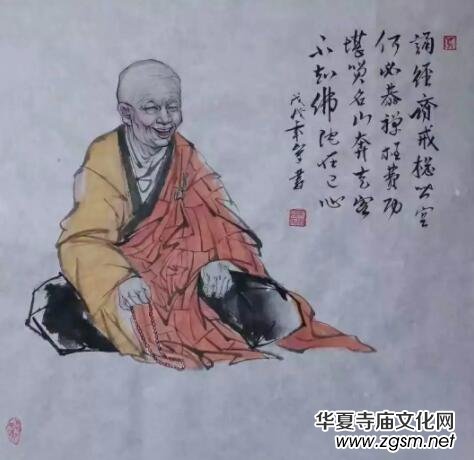 诵經斋戒总空
何必参禅枉费功
堪笑名山奔走客
不知佛陀在己心
戊戌年書
华夏寺庙文化网
www.zgsm.net